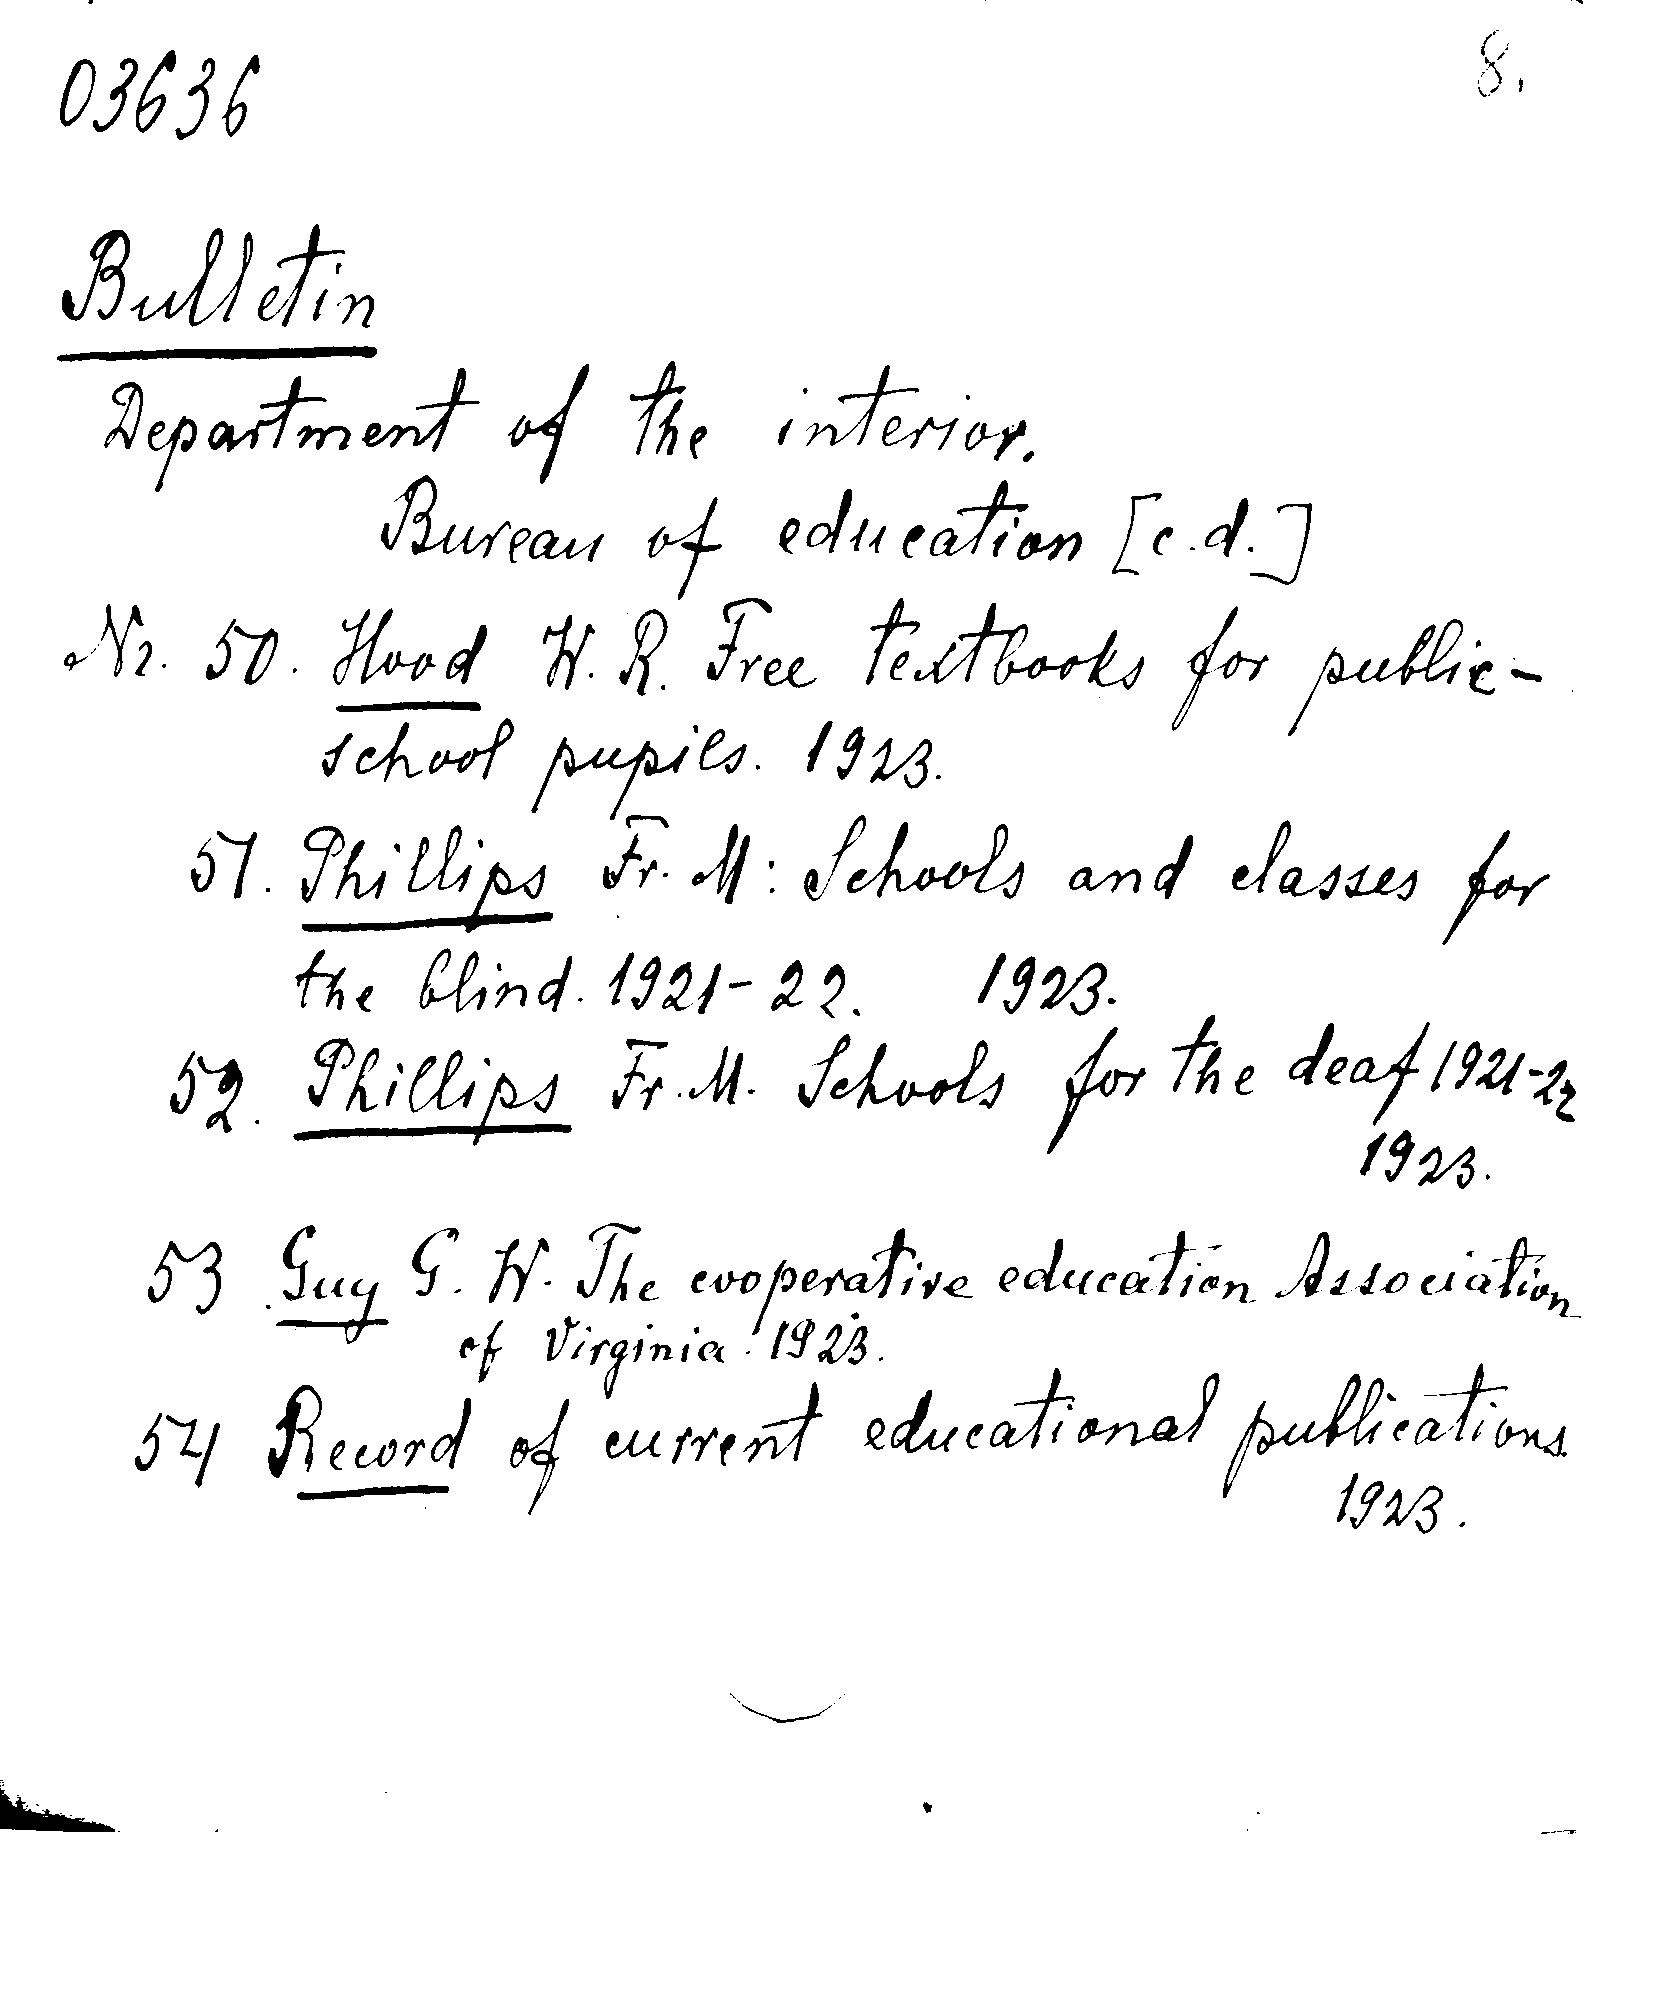 03636
8.
Bulletin
Department of the interior.
Bureau of education [c.d.]
Nr. 50. Hood W. R. Free textbooks for public-
school pupils. 1923.
51. Phillips Fr. M: Schools and classes for
the blind. 1921-22. 1923.
52. Phillips Fr. M. Schools for the deaf 1921-22
1923.
53 Guy G. W. The cooperative education Association
of Virginia. 1923.
54 Record of current educational publications
1923.